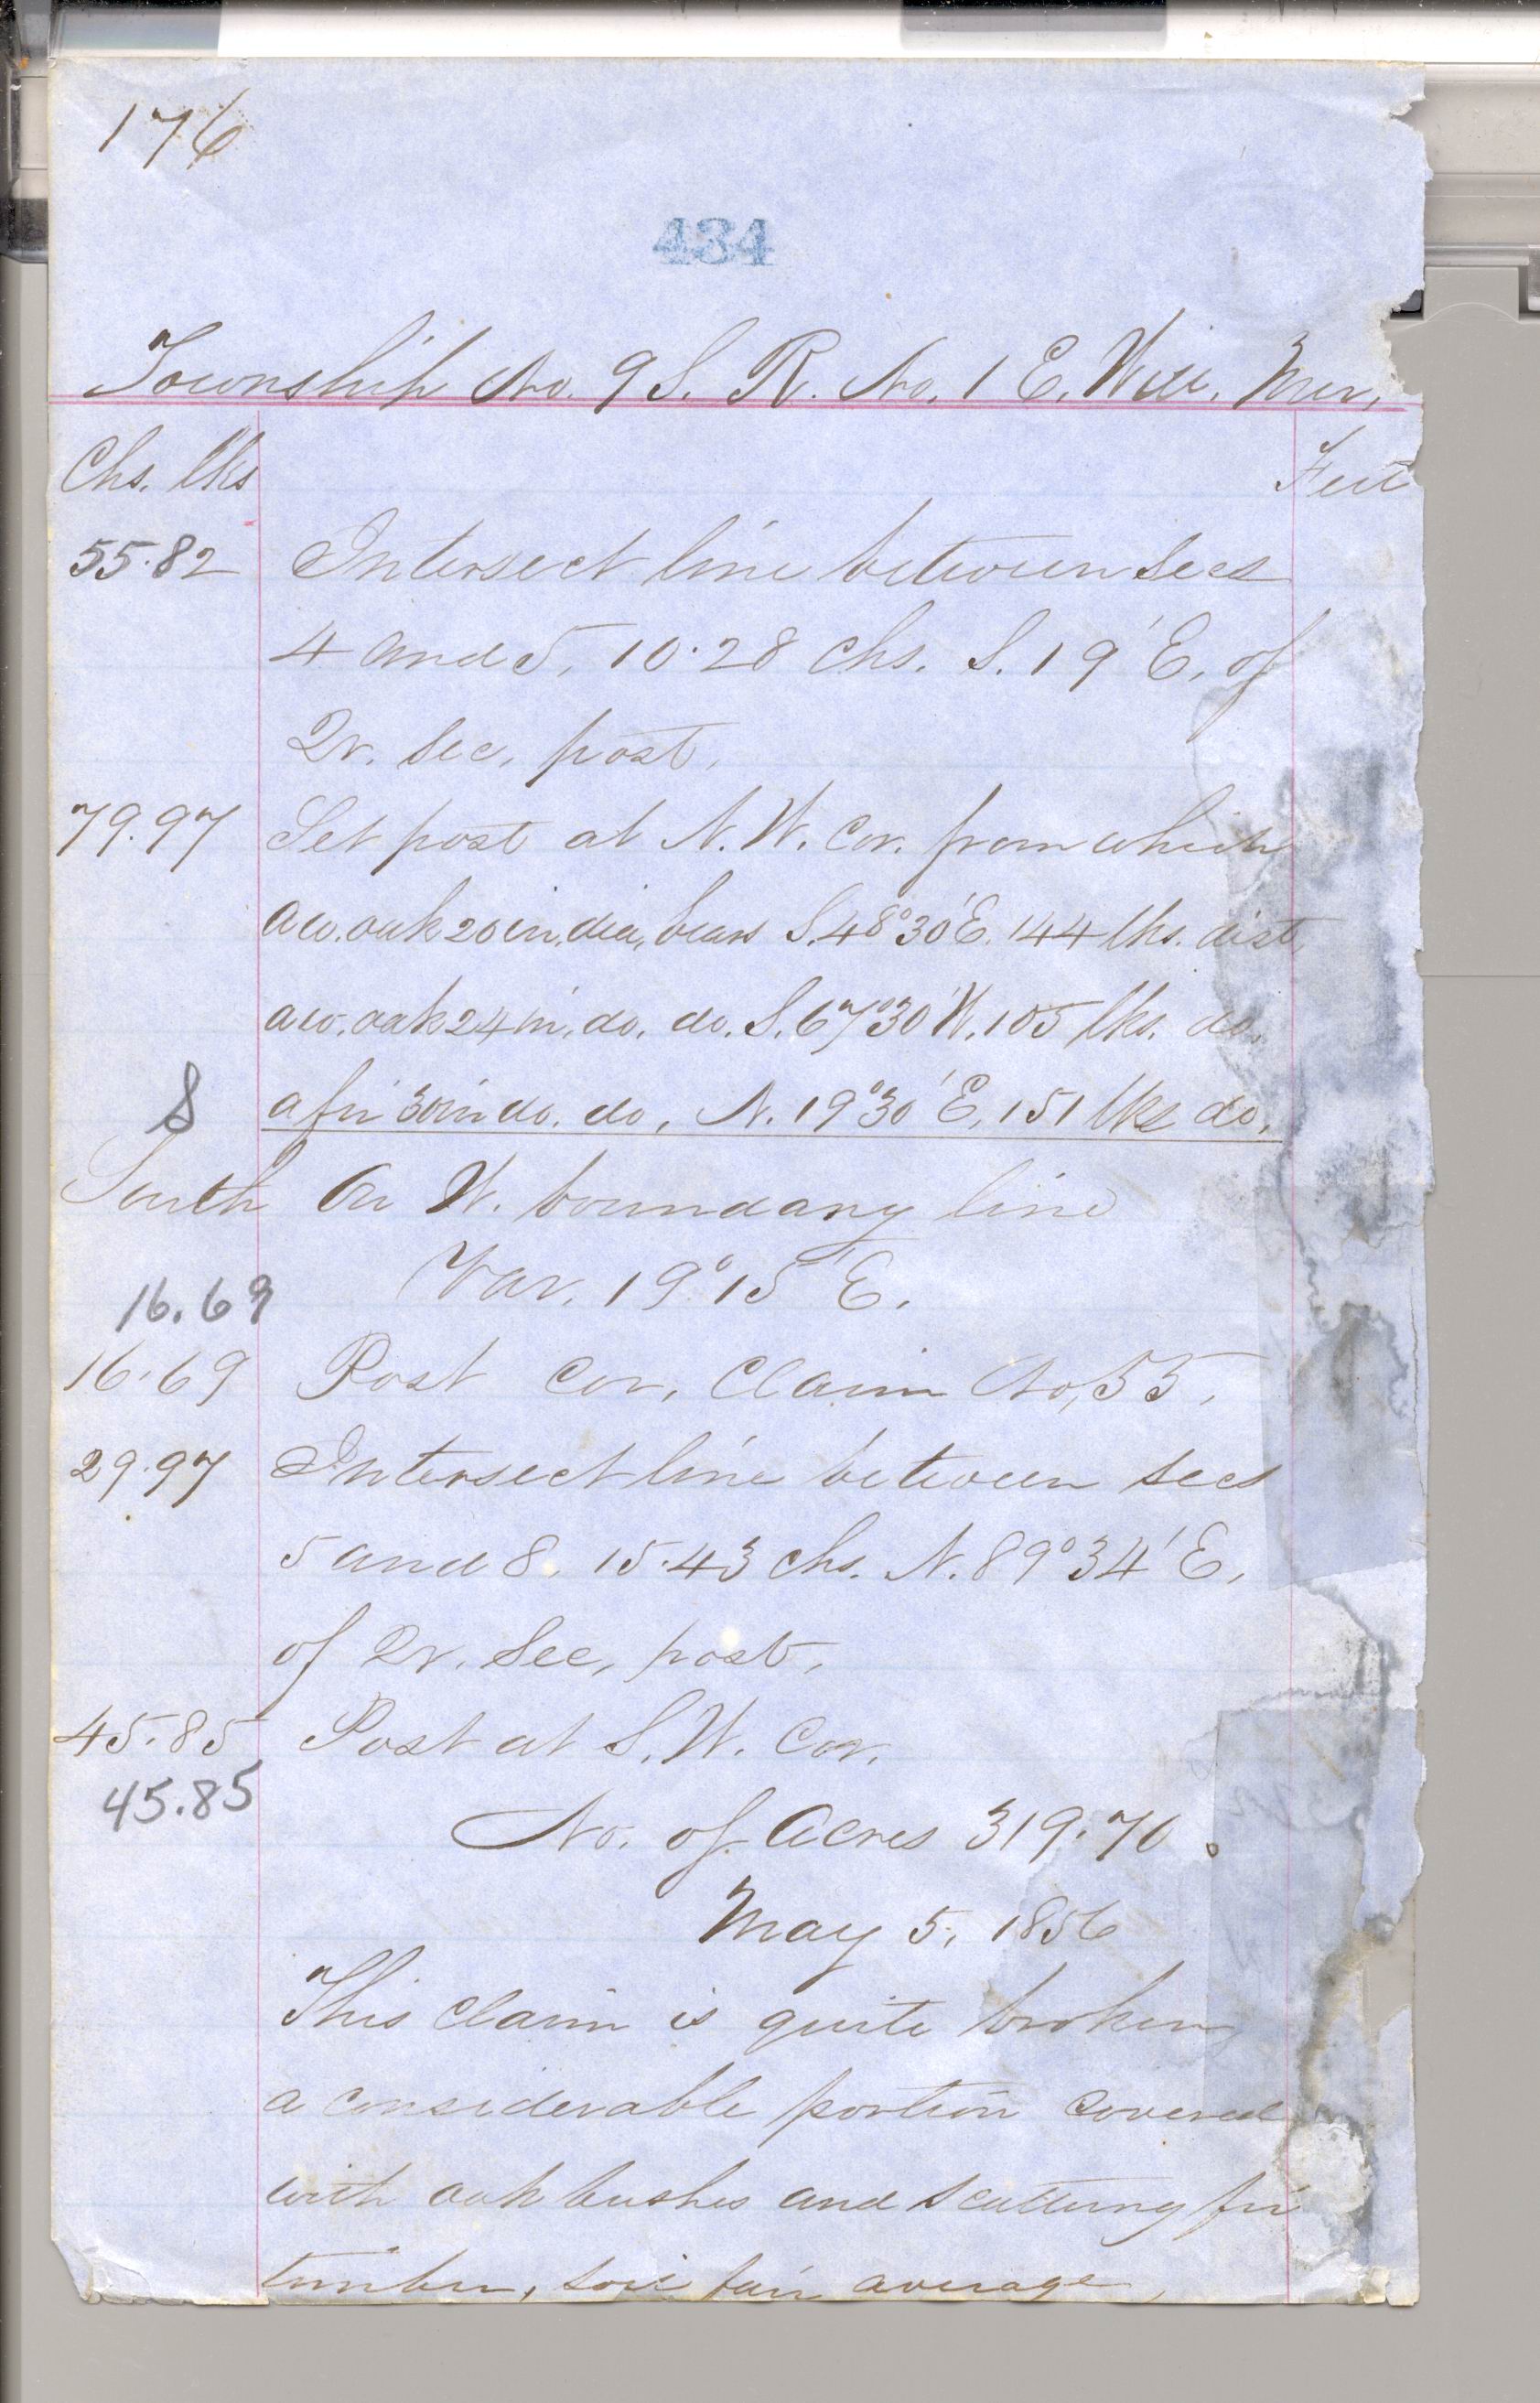 176
434
Township No. 9 S. R. No. 1 E. Will. Mer.
Chs. lks Feet
55.82 Intersect line between Secs
4 and 5, 10.28 chs. S. 19' E. of
Qr. Sec. post.
79.97 Set post at N. W. Cor. from which
a w. oak 20 in. dia. bears S. 48°30'E. 144 lks. dist
a w. oak 24 in. do. do. S. 67°30'W. 105 lks. do.
a fir 30 in do. do, N. 19°30'E, 151 lks do.
S
South On W. boundary line
Var. 19°15' E.
16.69
16.69 Post Cor. Claim No. 55.
29.97 Intersect line between secs
5 and 8, 15.43 chs. N. 89°34' E.
of Qr. Sec. post.
45.85 Post at S. W. Cor.
45.85
No. of Acres 319.70.
May 5, 1856
This claim is quite broken
a considerable portion covered
with oak bushes and scattering fir
timber, soil fair average,